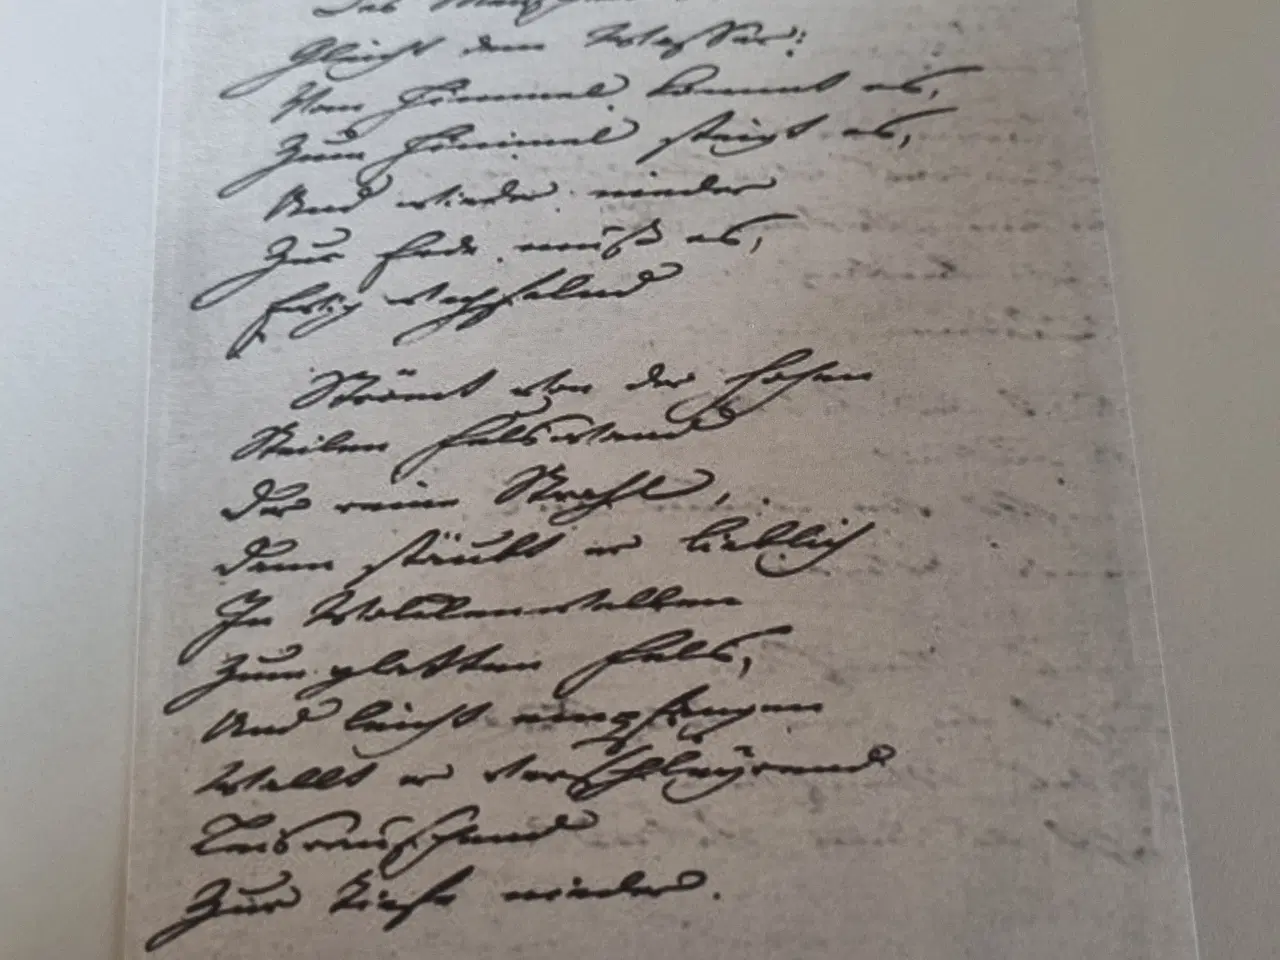 Des Menschen
Gleicht dem Wasser:
Vom Himmel kommt es,
Zum Himmel steigt es,
Und wieder nieder
Zur Erde muß es,
Ewig wechselnd
Strömt von der hohen
Steilen Felswand
Der reine Strahl,
Dann stäubt er lieblich
In Wolkenwellen
Zum glatten Fels,
Und leicht empfangen
Wallt er verschleyernd
Leisrauschend
Zur Tiefe nieder.